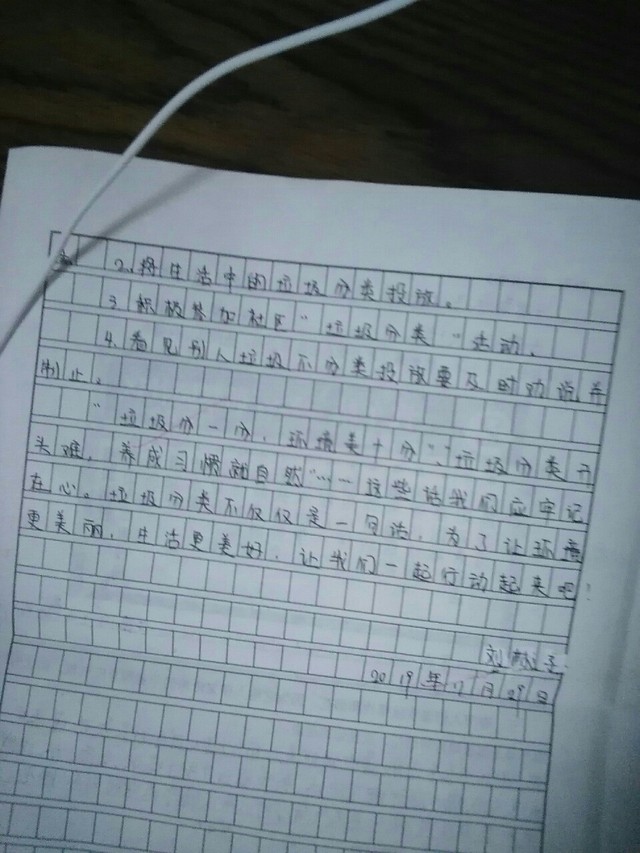 2.将生活中的垃圾分类投放。
3.积极参加社区"垃圾分类"活动。
4.看见别人垃圾不分类投放要及时劝说并
制止。
"垃圾分一分,环境美十分"、"垃圾分类开
头难,养成习惯就自然"……这些话我们应牢记
在心。垃圾分类不仅仅是一句话,为了让环境
更美丽,生活更美好,让我们一起行动起来吧!
刘
2019年11月29日